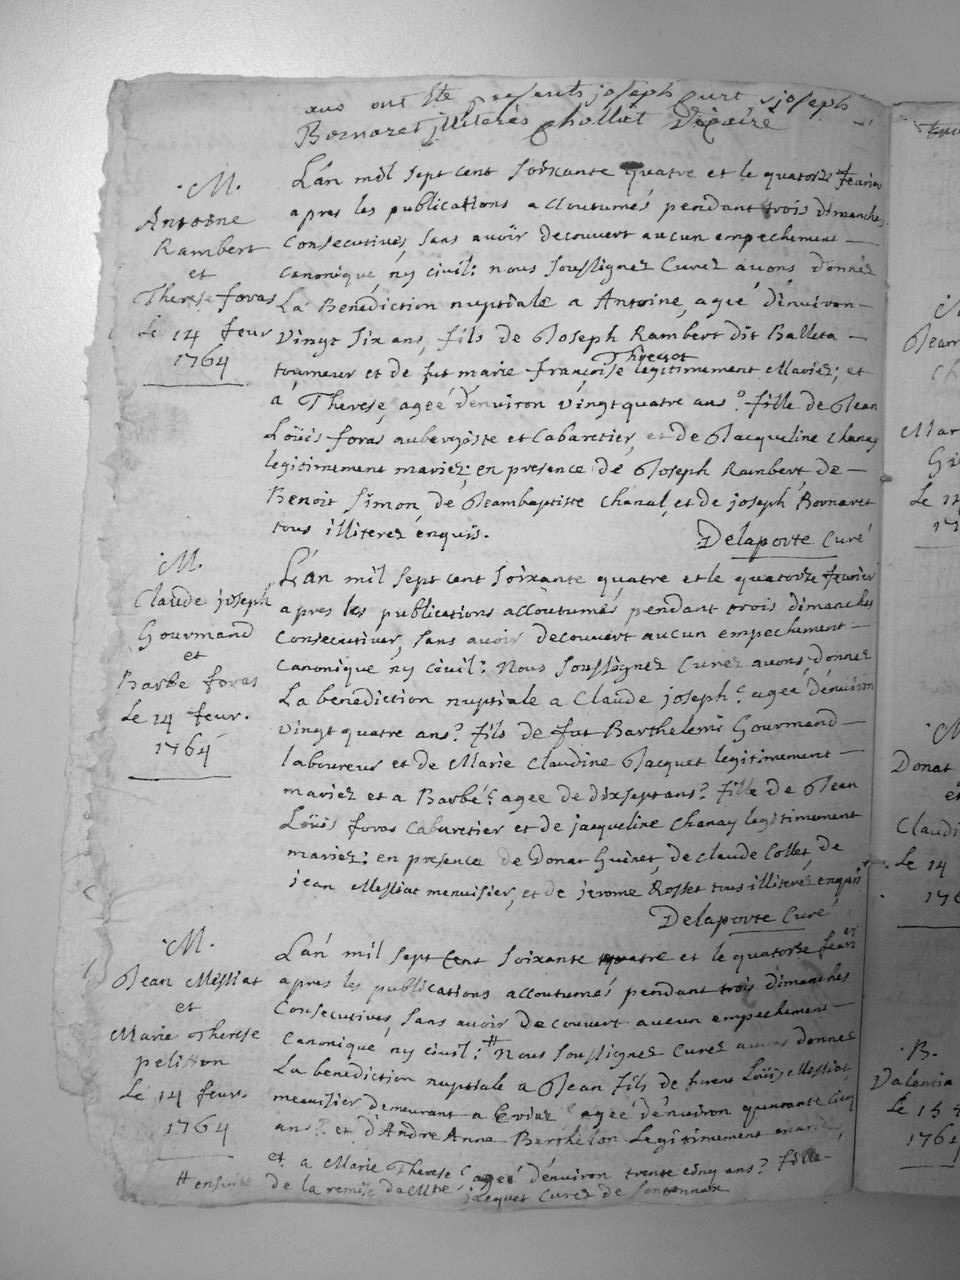 ont été presents joseph Curt joseph
Bornaret illiterés Chollet Vicaire
M.
Antoine
Rambert
et
Therese foras
Le 14 feur
1764
L'an mil sept cent soixante quatre et le quatorze fevrier
apres les publications accoutumés pendant trois dimanches
Consecutives, sans avoir decouvert aucun empechement
canonique ny civil: nous soussignez Curez avons donnéz
La Benediction nuptiale a Antoine, ageé d'environ
vingt six ans, fils de Joseph Rambert dit Balleta
tourneur et de fut marie françoise Thievet legitimement Mariez; et
a Therese, ageé d'environ vingtquatre ans? fille de Jean
Loüis foras aubergiste et Cabaretier, et de Jacqueline Chanay
legitimement mariez; en presence de Joseph Rambert de
Benoit Simon de Jeambaptiste Chanal, et de joseph Bornaret
tous illiterez enquis.
Delaporte Curé
M.
Claude joseph
Gourmand
et
Barbe foras
Le 14 feur.
1764
L'an mil sept cent soixante quatre et le quatorze fevrier
apres les publications accoutumés pendant trois dimanches
Consecutives, sans avoir decouvert aucun empechement
Canonique ny civil: Nous soussignez Curez avons donnez
La benediction nuptiale a Claude joseph ageé d'environ
vingt quatre ans? fils de fut Barthelemi Gourmand
laboureur et de Marie Claudine Jacquet legitimement
mariez et a Barbé ageé de dixsept ans? fille de Jean
Loüis foras Cabaretier et de jacqueline Chanay legitimement
mariez; en presence de Donat Guinet, de Claude Collet, de
jean Messiat menuisier, et de jerome Rosset tous illiteréz enquis
Delaporte Curé
M.
Jean Messiat
et
Marie Therese
pelisson
Le 14 feur.
1764
L'an mil sept Cent soixante quatre et le quatorze feur
apres les publications accoutumés pendant trois dimanches
Consecutives, sans avoir decouvert aucun empechement
Canonique ny civil: # Nous soussignez Curez avons donnez
La benediction nuptiale a Jean fils de Loüis Messiat
menuisier demeurant a ageé d'environ quarante cinq
ans? et d'Andre Anna Berthelon Legitimement
et a Marie Therese ageé d'environ trente cinq ans? fille
# ensuite de la remise de Mre jacquet Curez de
Jean
Mar
Le 14
Donat
et
Claudi
Le 14
B.
Valentin
Le 15
1764